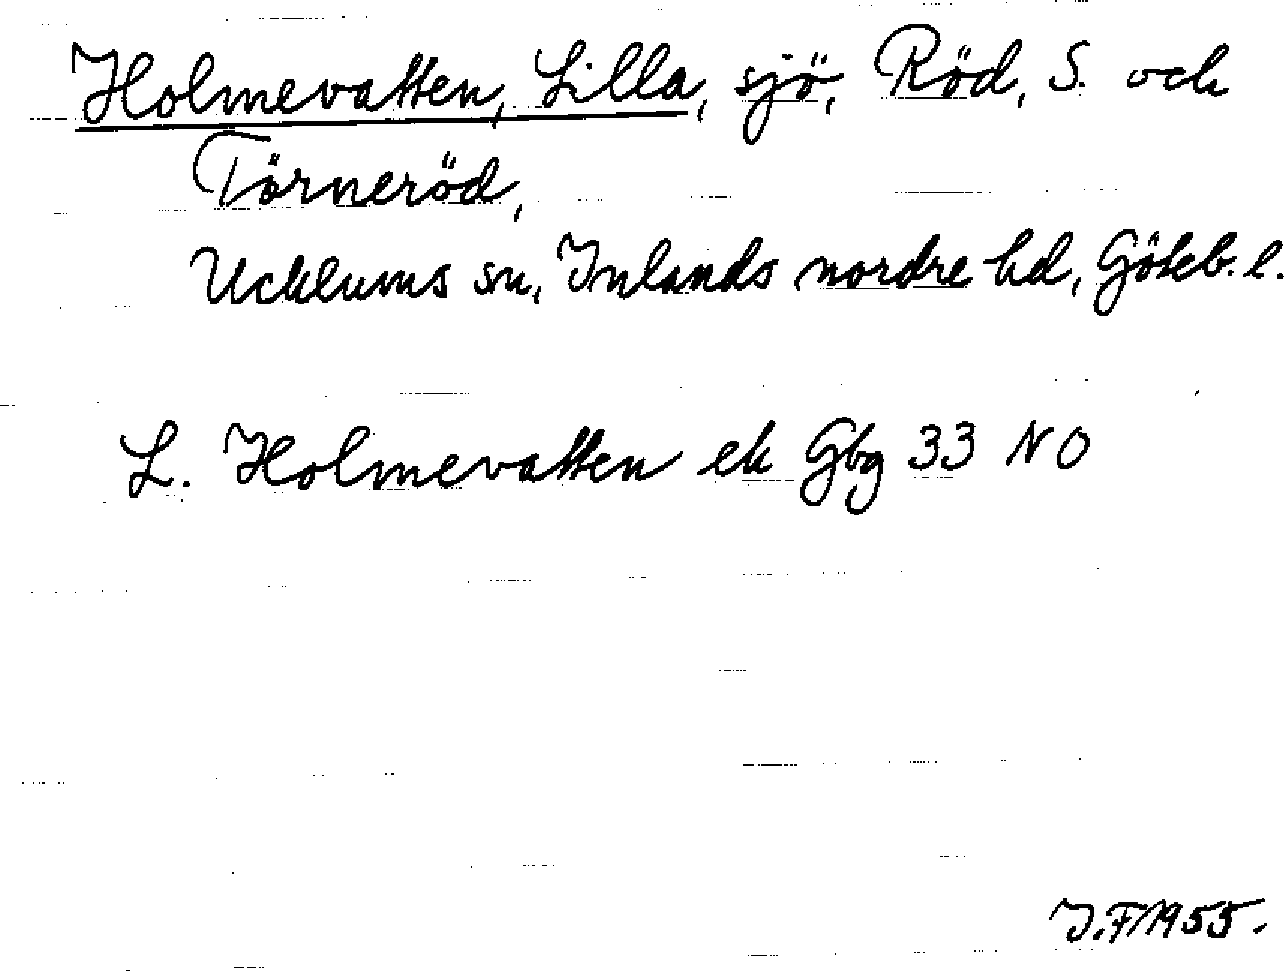 Holmevatten, Lilla, sjö, Röd, S. och
Törneröd,
Ucklums sn, Inlands nordre hd, Göteb. l.
L. Holmevatten ek Gbg 33 NO
I.F. 1955.